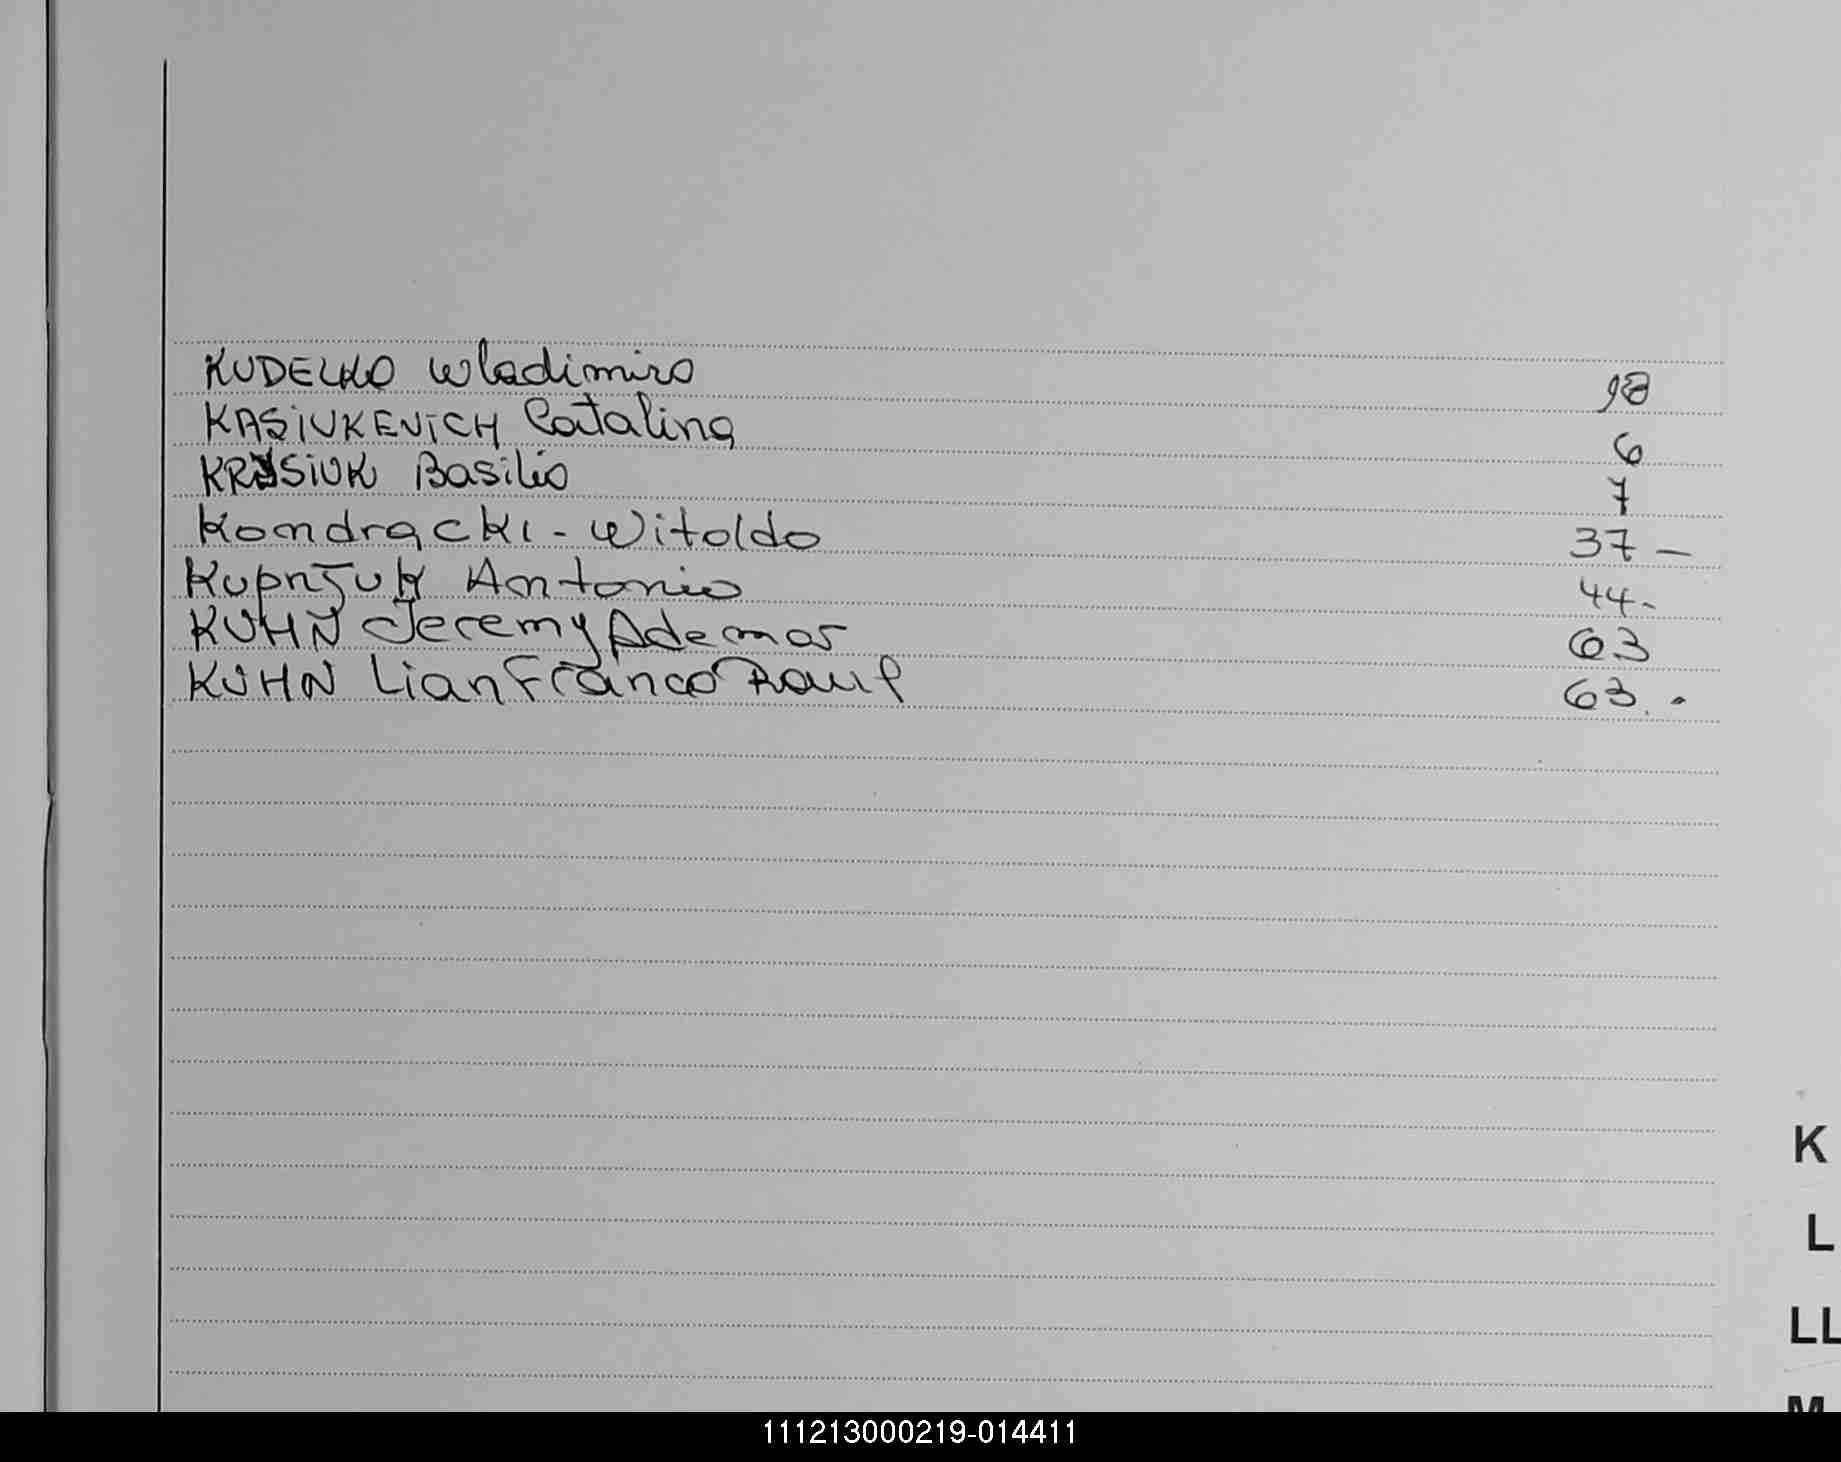 KUDELKO Wladimiro 98
KASIUKEVICH Catalina 6
KRYSIUK Basilio 7
Kondracki - Witoldo 37 -
Antonio 44.
KUHN Jeremy Ademar 63
KUHN Lian Franco Raul 63.
K
L
LL
M
111213000219-014411